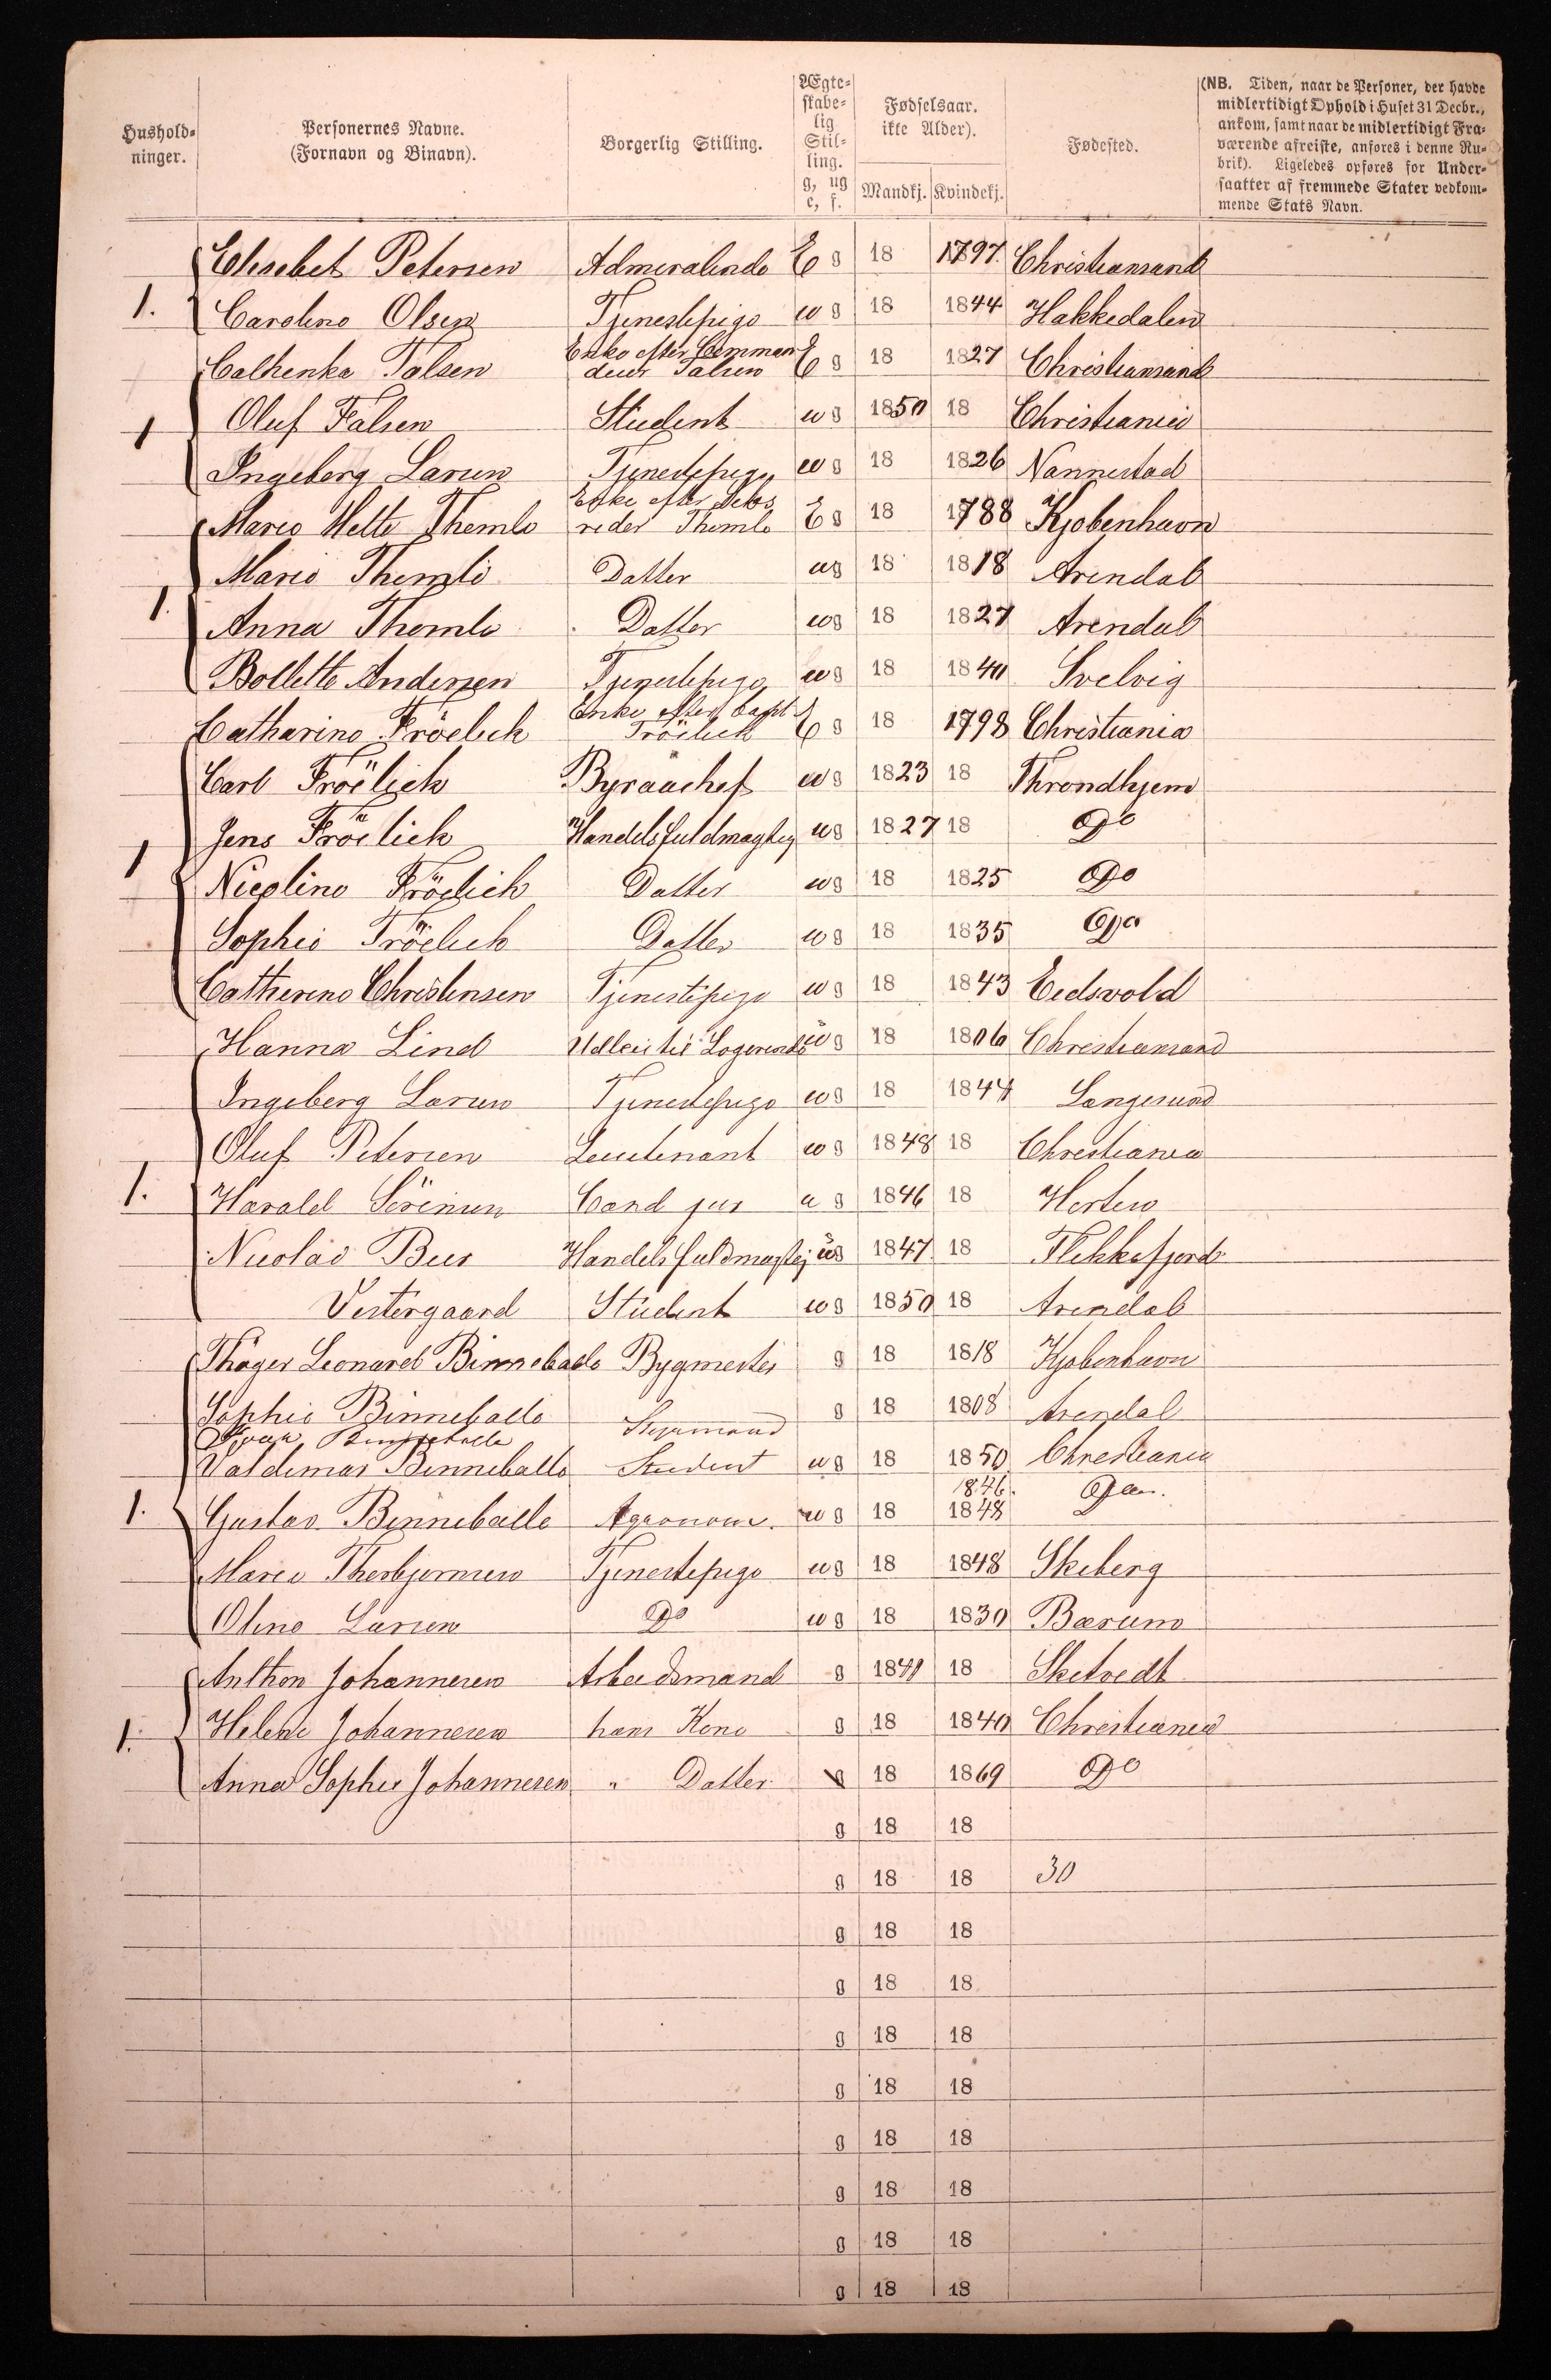 Hushold-
ninger.
Personernes Navne.
(Fornavn og Binavn).
Borgerlig Stilling.
Ægte-
skabe-
lig
Stil-
ling.
g, ug
e, f.
Fødselsaar.
ikke Alder).
Mandkj. Kvindekj.
Fødested.
(NB. Tiden, naar de Personer, der havde
midlertidigt Ophold i Huset 31 Decbr.,
ankom, samt naar de midlertidigt Fra-
værende afreiste, anføres i denne Ru-
brik). Ligeledes opføres for Under-
saatter af fremmede Stater vedkom-
mende Stats Navn.
Elisebet Petersen Admiralinde E g 18 1797. Christiansand
1. Caroline Olsen Tjenestepige u g 18 1844 Hakkedalen
Cathenka Falsen Enke efter Comman
deur Falsen E g 18 1827 Christiansand
1 Oluf Falsen Student u g 1850 18 Christiania
Ingeborg Larsen Tjenestepige u g 18 1826 Nannestad
Marie Mette Themle Enke efter
reder Themle E g 18 1788 Kjøbenhavn
Marie Themle Datter u g 18 1818 Arendal
1. Anna Themle Datter u g 18 1827 Arendal
Bollette Andersen Tjenestepige u g 18 1840 Svelvig
Catharine Fröelich Enke efter Capt
Fröelich E g 18 1798 Christiania
Carl Fröelich Byraachef u g 1823 18 Throndhjem
Jens Fröelich Handelsfuldmagtig u g 1827 18 Do
1 Nicoline Fröelich Datter u g 18 1825 Do
Sophie Fröelich Datter u g 18 1835 Do
Catherine Christensen Tjenestepige u g 18 1843 Eedsvold
Hanna Lind Udleier til Logerende u g 18 1806 Christiansand
Ingeborg Larsen Tjenestepige u g 18 1844 Langesund
Oluf Petersen Leutenant u g 1848 18 Christiania
1. Harald Sörensen Cand jur u g 1846 18 Horten
Nicolai Beer Handelsfuldmagtig u g 1847. 18 Flekkefjord
Vestergaard Student u g 1850 18 Arendal
Thøger Leonard Binneballe Bygmester g 18 1818 Kjøbenhavn
Sophie Binneballe g 18 1808 Arendal
Binneballe Styrmand
Valdemar Binneballe Student u g 18 1850 Christiania
1846.
1. Gustav Binneballe Agronom. u g 18 1848 Do
Maria Thorbjørnsen Tjenestepige u g 18 1848 Skeberg
Oline Larsen Do u g 18 1830 Bærum
Anthon Johannesen Arbeidsmand g 1840 18 Sketvedt
1. Helene Johannesen hans Kone g 18 1840 Christiania
Anna Sophie Johannesen " Datter g 18 1869 Do
g 18 18
g 18 18 30
g 18 18
g 18 18
g 18 18
g 18 18
g 18 18
g 18 18
g 18 18
g 18 18